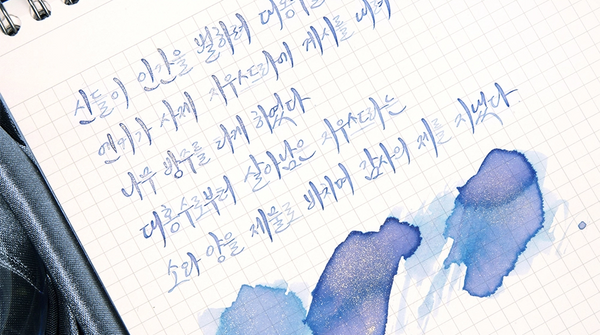 신들이 인간을 벌하려 대홍수를
엔키가 사제 지우쓰드라에 계시를 내려
나무 방주를 타게 하였다
대홍수로부터 살아남은 지우쓰드라는
소와 양을 제물로 바치며 감사의 제를 지냈다.